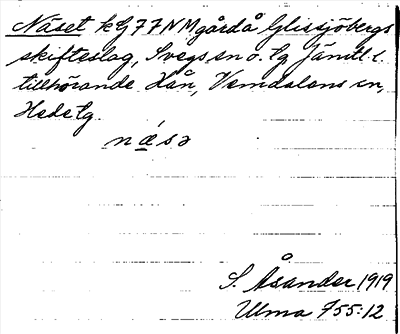 Näset kG77NM gård å Glissjöbergs
skifteslag, Svegs sn o. tg Jämtl. l.
tillhörande Hån, Vemdalens sn,
Hede tg.
næsə
S. Åsander 1919
Ulma 755:12